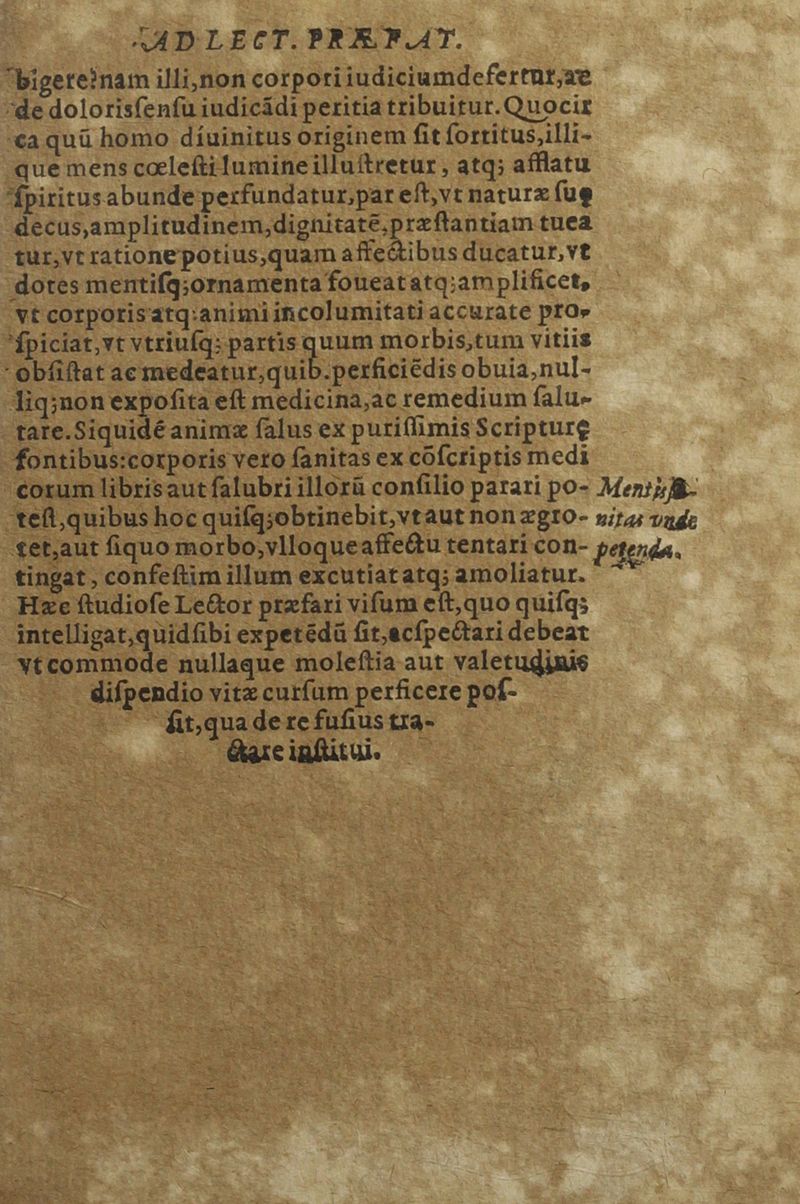 AD LECT. PRÆFAT.
bigere? nam illi, non corpori iudicium defertur, ac
de doloris ſenſu iudicādi peritia tribuitur. Quocir
ca quū homo diuinitus originem ſit ſortitus, illi-
que mens cœleſti lumine illuſtretur, atq; afflatu
ſpiritus abunde perfundatur, par eſt, vt naturæ ſuę
decus, amplitudinem, dignitatē, præſtantiam tuea
tur, vt ratione potius, quam affectibus ducatur, vt
dotes mentiſq; ornamenta foueat atq; amplificet,
vt corporis atq; animi incolumitati accurate pro-
ſpiciat, vt vtriuſq; partis quum morbis, tum vitiis
obſiſtat ac medeatur, quib. perficiēdis obuia, nul-
liq; non expoſita eſt medicina, ac remedium ſalu-
tare. Siquidē animæ ſalus ex puriſſimis Scripturę
fontibus: corporis vero ſanitas ex cōſcriptis medi
corum libris aut ſalubri illorū conſilio parari po- Mentis ſa-
teſt, quibus hoc quiſq; obtinebit, vt aut non ægro- nitas vnde
tet, aut ſiquo morbo, vlloque affectu tentari con- petenda.
tingat, confeſtim illum excutiat atq; amoliatur.
Hæc ſtudioſe Lector præfari viſum eſt, quo quiſq;
intelligat, quid ſibi expetēdū ſit, acſpectari debeat
vt commode nullaque moleſtia aut valetudinis
diſpendio vitæ curſum perficere poſ-
ſit, qua de re fuſius tra-
ctare inſtitui.